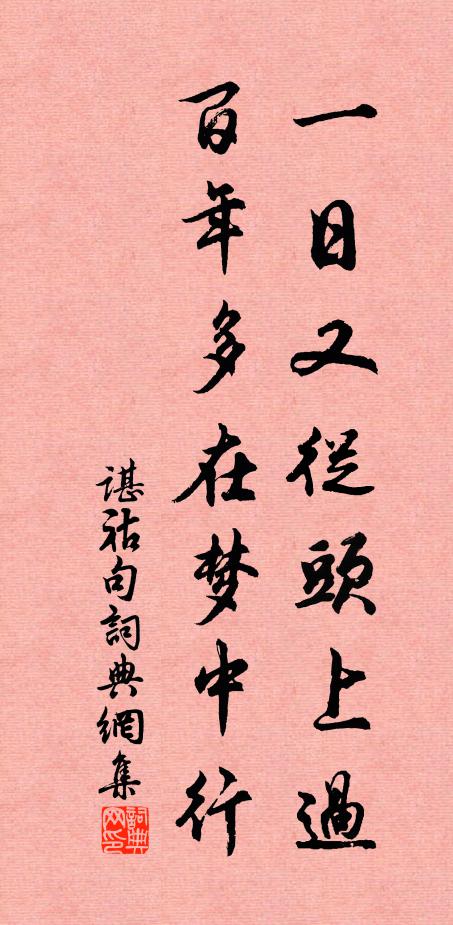 一日又從頭上過
百年多在梦中行
諶祜句詞典網集
詞典网印